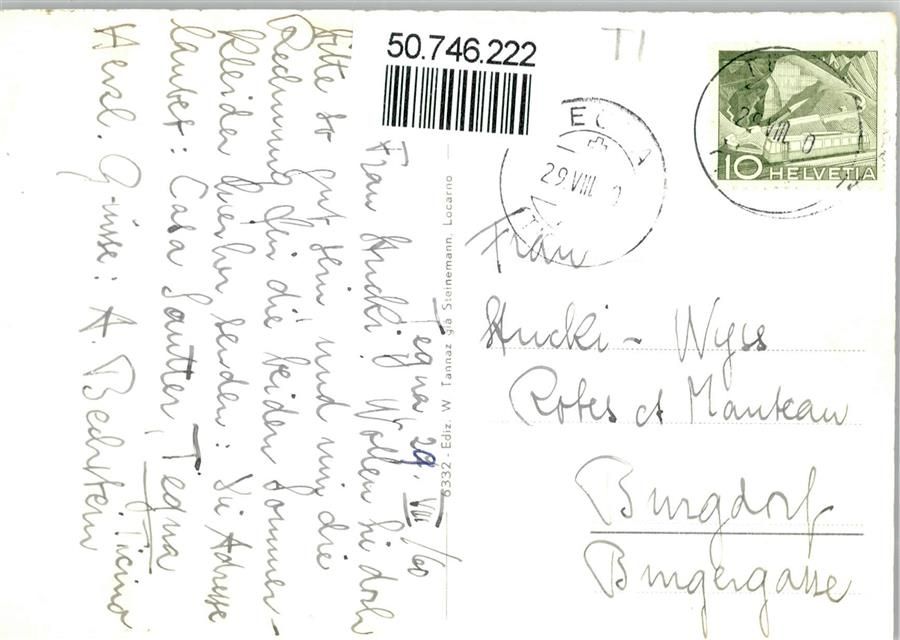 50.746.222
TI
10 HELVETIA
29.VIII
Tegna, 29. VIII/60
Frau Stucki. Wollen Sie doch
bitte so gut sein und mir die
Rechnung für die beiden Sommer-
kleider hierher senden: Die Adresse
lautet: Casa Sautter, Tegna
Ticino
Herzl. Grüsse: A. Bechstein
6332 - Ediz. W Tannaz già Steinemann, Locarno
Frau
Stucki - Wyss
Robes et Manteau
Burgdorf
Burgergasse